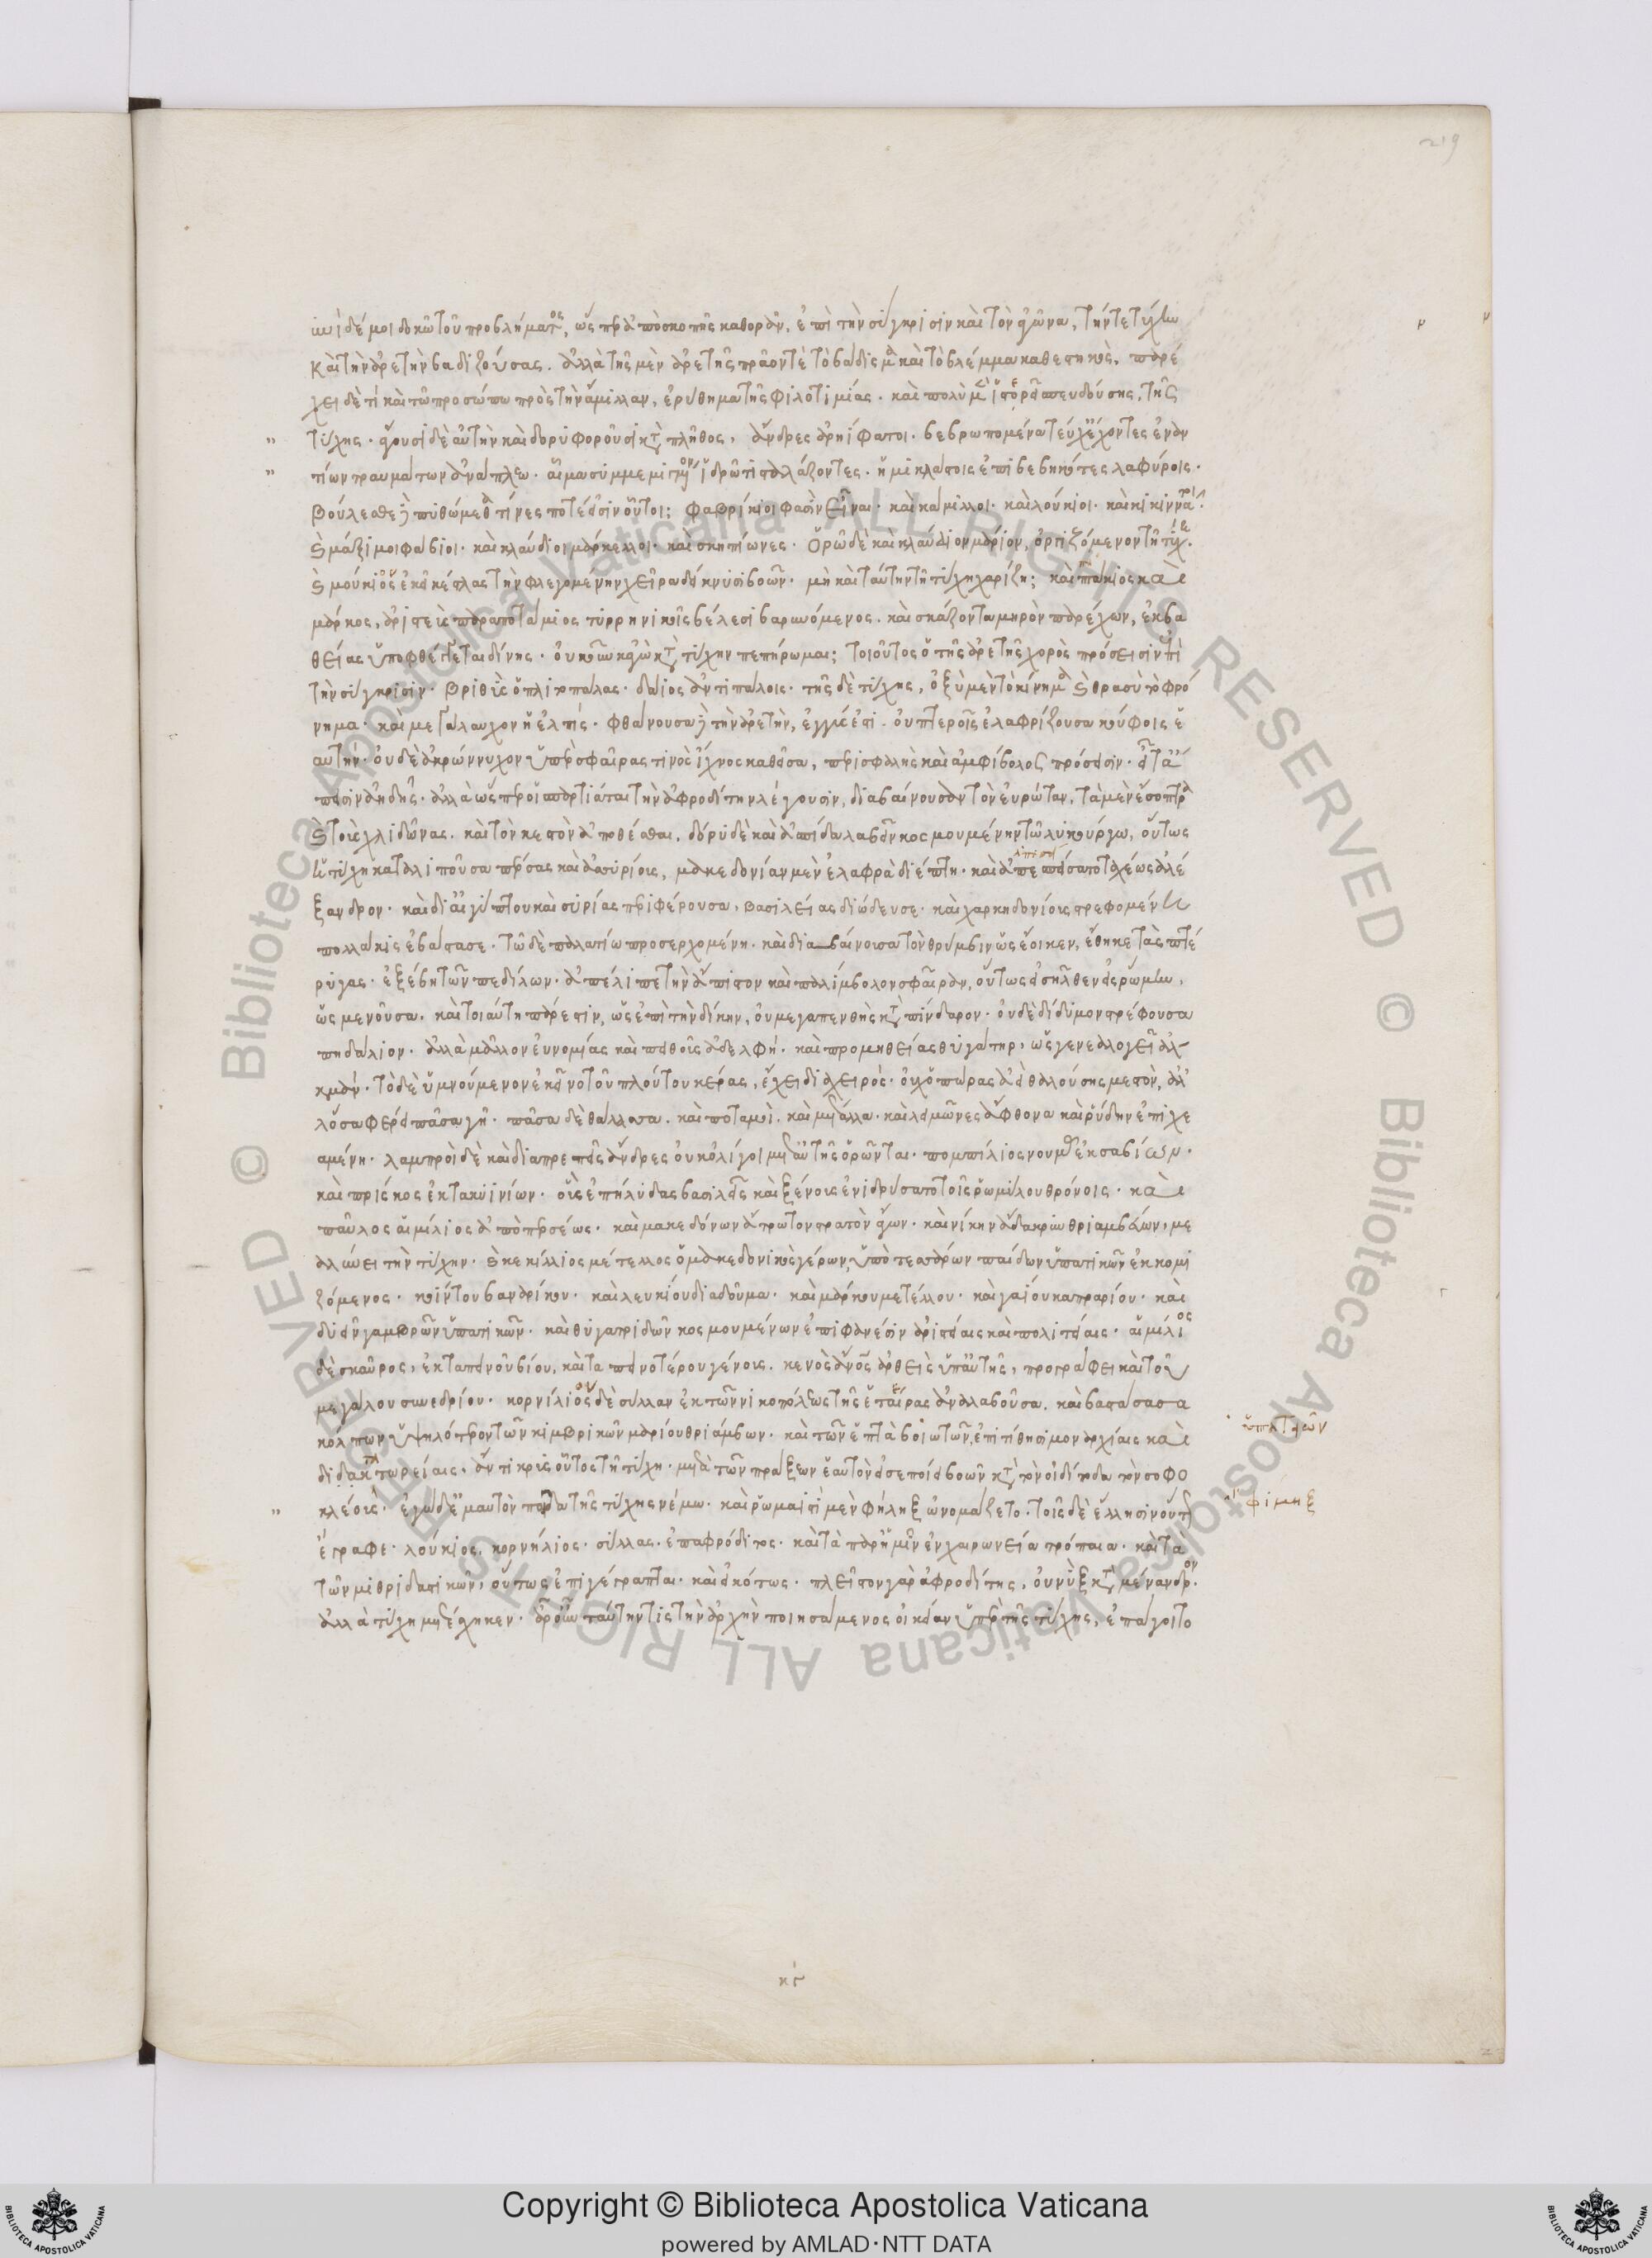 219
νυνὶ δέ μοι δοκῶ τοῦ προβλήματος, ὥσπερ ἀπὸ σκοπῆς καθορᾶν, ἐπὶ τὴν σύγκρισιν καὶ τὸν ἀγῶνα, τήν τε τύχην
καὶ τὴν ἀρετὴν βαδιζούσας. ἀλλὰ τῆς μὲν ἀρετῆς πρᾶόν τε τὸ βάδισμα καὶ τὸ βλέμμα καθεστηκὸς, παρέ
χει δὲ τι καὶ τῷ προσώπῳ πρὸς τὴν ἅμιλλαν, ἐρύθημα τῆς φιλοτιμίας. καὶ πολὺ μὲν ὑστερεῖ σπευδούσης, τῆς
τύχης. ἄγουσι δὲ αὐτὴν καὶ δορυφοροῦσι κατὰ πλῆθος, ἄνδρες ἀρηίφατοι. βεβροτωμένα τεύχε' ἔχοντες ἐναν
τίων τραυμάτων ἀνάπλεῳ. αἷμα συμμεμιγμένον ἱδρῶτι σταλάζοντες. ἡμικλάστοις ἐπιβεβηκότες λαφύροις.
Βούλεσθε πυθώμεθα τίνες ποτέ εἰσιν οὗτοι; Φαβρίκιοί φασιν εἶναι. καὶ κάμιλλοι. καὶ λούκιοι. καὶ κικιννάτοι.
καὶ μάξιμοι φάβιοι. καὶ κλαύδιοι μάρκελλοι. καὶ σκηπίωνες. Ὁρῶ δὲ καὶ κλαύδιον μάριον, ὀργιζόμενον τῇ τύχῃ.
καὶ μούκιος ἐκεῖ σκεύλας τὴν φλεγομένην χεῖρα δείκνυσι βοῶν. μὴ καὶ ταύτην τῇ τύχῃ χαρίζῃ; καὶ
μάρκος, ἀριστεὺς παραποτάμιος τυρρηνικοῖς βέλεσι βαρυνόμενος. καὶ σκάζοντα μηρὸν παρέχων, ἐκ βα
θείας ὑποφθέγγεται δίνης. οὐκοῦν κἀγὼ κατὰ τύχην πεπήρωμαι; τοιοῦτος ὁ τῆς ἀρετῆς χορὸς πρόσεισιν ἐπὶ
τὴν σύγκρισιν. βριθὺς ὁπλιτοπάλας. δάϊος ἀντιπάλοις. τῆς δὲ τύχης, ὀξὺ μὲν τὸ κίνημα καὶ θρασὺ τὸ φρό
νημα. καὶ μεγάλαυχον ἡ ἐλπίς. φθάνουσα δὲ τὴν ἀρετὴν, ἐγγύς ἐστι. οὐ πτεροῖς ἐλαφρίζουσα κούφοις ἑ
αυτήν. οὐδὲ ἀκρώνυχον ὑπὲρ σφαίρας τινὸς ἴχνος καθεῖσα, περισφαλὴς καὶ ἀμφίβολος πρόσεισιν. εἶτα ἄ
πεισιν ἀηδής. ἀλλ' ὥσπερ οἱ σπαρτιᾶται τὴν ἀφροδίτην λέγουσιν, διαβαίνουσαν τὸν εὐρώταν, τὰ μὲν ἔσοπτρα
καὶ τοὺς χλιδῶνας. καὶ τὸν κεστὸν ἀποθέσθαι. δόρυ δὲ καὶ ἀσπίδα λαβεῖν κοσμουμένην τῷ λυκούργῳ, οὕτως
ἡ τύχη καταλιποῦσα πέρσας καὶ ἀσσυρίους, μακεδονίαν μὲν ἐλαφρὰ διέπτη. καὶ ἀπεσείσατο ταχέως ἀλέ
ξανδρον. καὶ δι' αἰγύπτου καὶ συρίας περιφέρουσα, βασιλείας διώδευσε. καὶ χαρκηδονίους τρεφομένη
πολλάκις ἐβάστασε. τῷ δὲ παλατίῳ προσερχομένη. καὶ διαβαίνουσα τὸν θρύμβιν ὡς ἔοικεν, ἔθηκε τὰς πτέ
ρυγας. ἐξέβη τῶν πεδίλων. ἀπέλιπε τὴν ἄπιστον καὶ παλίμβολον σφαῖραν, οὕτως εἰσῆλθεν εἰς ῥώμην,
ὡς μενοῦσα. καὶ τοιαύτη πάρεστιν, ὡς ἐπὶ τὴν δίκην, οὐ μὲν ἀπειθὴς κατὰ πίνδαρον. οὐδὲ δίδυμον στρέφουσα
πηδάλιον. ἀλλὰ μᾶλλον εὐνομίας καὶ πειθοῦς ἀδελφή. καὶ προμηθείας θυγάτηρ, ὡς γενεαλογεῖ ἀλ
κμάν. τὸ δὲ ὑμνούμενον ἐκεῖνο τοῦ πλούτου κέρας, ἔχει διὰ χειρός. οὐχ ὀπώρας ἀεὶ θαλλούσης μεστὸν, ἀλλ'
ὅσα φέρει πᾶσα γῆ. πᾶσα δὲ θάλασσα. καὶ ποταμοὶ. καὶ μέταλλα. καὶ λιμένες ἄφθονα καὶ ῥύδην ἐπιχε
αμένη. λαμπροὶ δὲ καὶ διαπρεπεῖς ἄνδρες οὐκ ὀλίγοι μετ' αὐτῆς ὁρῶνται. πομπίλιος νουμᾶς ἐκ σαβίων.
καὶ πρίσκος ἐκ ταρκυινίων. οὓς ἐπήλυδας βασιλεῖς καὶ ξένους ἐνιδρύσατο τοῖς ῥωμύλου θρόνοις. καὶ
παῦλος αἰμίλιος ἀπὸ περσέως. καὶ μακεδόνων ἄτρωτον στρατὸν ἄγων. καὶ νίκην ἄδακρυν θριαμβεύων, με
γαλύνει τὴν τύχην. καὶ κεκίλλιος μέτελλος ὁ μακεδονικὸς γέρων, ὑπὸ τεσσάρων παίδων ὑπατικῶν ἐκκομι
ζόμενος. κοίντου βαλιαρικοῦ. καὶ λευκίου διαδούμα. καὶ μάρκου μετέλλου. καὶ γαίου καπραρίου. καὶ
δυεῖν γαμβρῶν ὑπατικῶν. καὶ θυγατριδῶν κοσμουμένων ἐπιφανέσιν ἀριστείαις καὶ πολιτείαις. αἰμίλιος
δὲ σκαῦρος, ἐκ ταπεινοῦ βίου, καὶ ταπεινοτέρου γένους. κενὸς ἀνὴρ ἀρθεὶς ὑπ' αὐτῆς, προγράφει καὶ τοῦ
μεγάλου συνεδρίου. κορνίλιος δὲ σύλλαν ἐκ τῶν νικοπόλεως τῆς ἑταίρας ἀναλαβοῦσα. καὶ βαστάσασα
κόλπων ὑψηλότερον τῶν κιμβρικῶν μαρίου θριάμβων. καὶ τῶν ἑπτὰ βοιωτῶν, ἐπιτίθησι μοναρχίαις καὶ
δικτατωρείαις. ἄντικρυς οὗτος τῇ τύχῃ. μετὰ τῶν πράξεων ἑαυτὸν εἰσεποίει βοῶν κατὰ τὸν οἰδίποδα τὸν σοφο
κλέους. ἐγὼ δ' ἐμαυτὸν παῖδα τῆς τύχης νέμω. καὶ ῥωμαϊστὶ μὲν φήληξ ὠνομάζετο. τοῖς δὲ ἕλλησιν οὕτως
ἔγραφε. λούκιος, κορνήλιος. σύλλας. ἐπαφρόδιτος. καὶ τὰ παρ' ἡμῖν ἐν χαιρωνείᾳ τρόπαια. καὶ τὰ
τῶν μιθριδατικῶν, οὕτως ἐπιγέγραπται. καὶ εἰκότως. πλεῖστον γὰρ ἀφροδίτης, οὐ νὺξ κατὰ μένανδρον.
ἀλλὰ τύχη μετέσχηκεν. ἆρ' οὖν ταύτην τις τὴν ἀρχὴν ποιησάμενος οἰκείαν ὑπὲρ τῆς τύχης, ἐπάγοιτο
ὑπατειῶν
φίληξ
κϛ
Copyright © Biblioteca Apostolica Vaticana
powered by AMLAD·NTT DATA